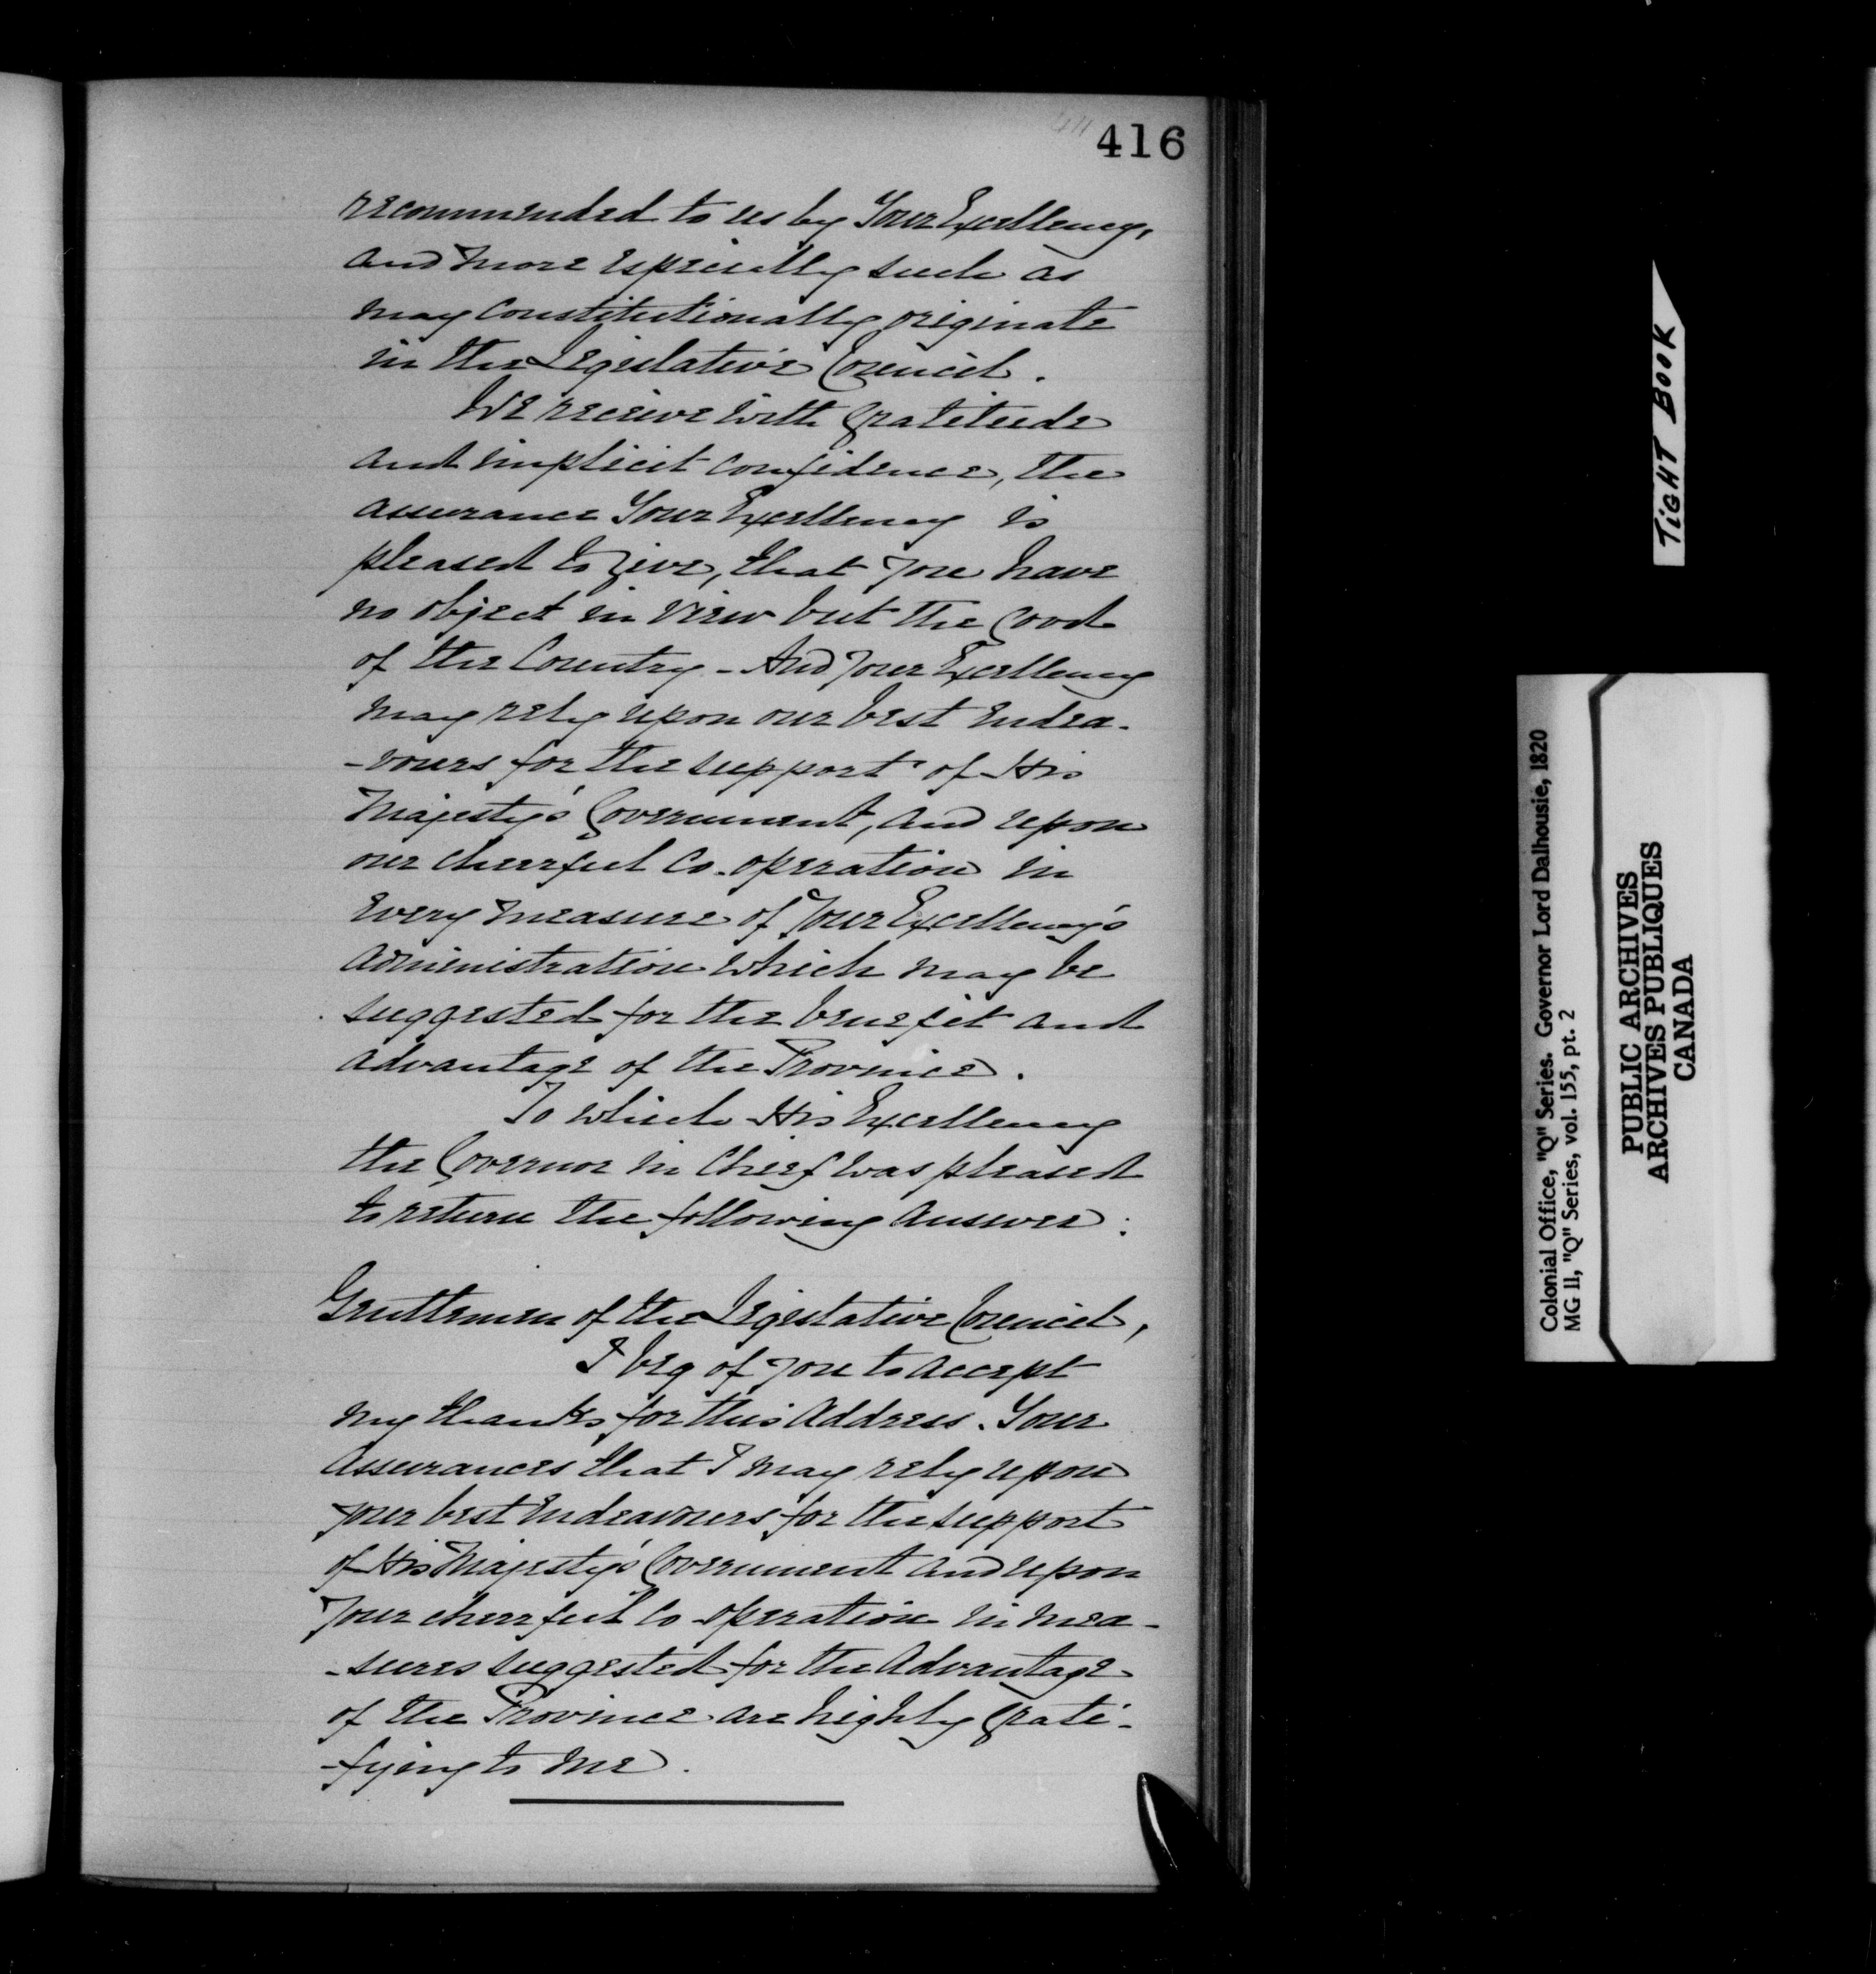 416
recommended to us by Your Excellency,
and more especially such as
may Constitutionally originate
in the Legislative Council.
We receive with Gratitude
and implicit confidence, the
assurance Your Excellency is
pleased to give, that you have
no object in view but the Good
of the Country - And your Excellency
may rely upon our best Endea-
-vours for the support of His
Majesty's Government, and upon
our cheerful Co-operation in
every measure of Your Excellency's
Administration which may be
suggested for the benefit and
advantage of the Province.
To which His Excellency
the Governor in Chief was pleased
to return the following Answer:
Gentlemen of the Legislative Council,
I beg of you to accept
my thanks for this Address. Your
Assurances that I may rely upon
your best Endeavours for the support
of His Majesty's Government and upon
your cheerful Co-operation in mea-
-sures suggested for the Advantage
of the Province are highly Grati-
-fying to me.
TIGHT BOOK
Colonial Office, "Q" Series. Governor Lord Dalhousie, 1820
MG 11, "Q" Series, vol. 155, pt. 2
PUBLIC ARCHIVES
ARCHIVES PUBLIQUES
CANADA